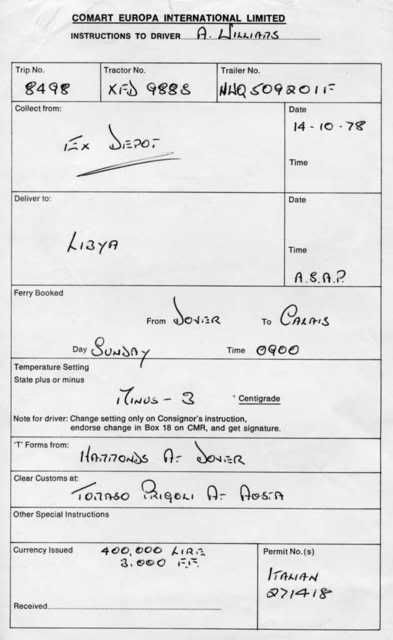 COMART EUROPA INTERNATIONAL LIMITED
INSTRUCTIONS TO DRIVER A. WILLIAMS
Trip No. Tractor No. Trailer No.
8498 XFD 988S NHQ5092011F
Collect from: Date
14-10-78
EX DEPOT
Time
Deliver to: Date
LIBYA
Time
A.S.A.P.
Ferry Booked
From DOVER To CALAIS
Day SUNDAY Time 0900
Temperature Setting
State plus or minus
MINUS - 3 ° Centigrade
Note for driver: Change setting only on Consignor's instruction,
endorse change in Box 18 on CMR, and get signature.
'T' Forms from:
HAMMONDS AT DOVER
Clear Customs at:
TOMASO PRIGOLI AT AOSTA
Other Special Instructions
Currency Issued 400,000 LIRE Permit No.(s)
3.000 F.F.
ITALIAN
271418
Received